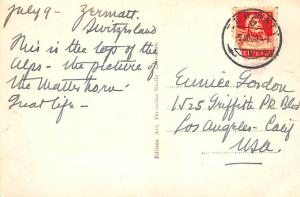 July 9 - Zermatt.
Switzerland
This is the top of the
Alps - the picture of
the Matterhorn
Great life -
Eunice Gordon
1525 Griffith Pk Blvd
Los Angeles - Calif
USA.
Edition Art.